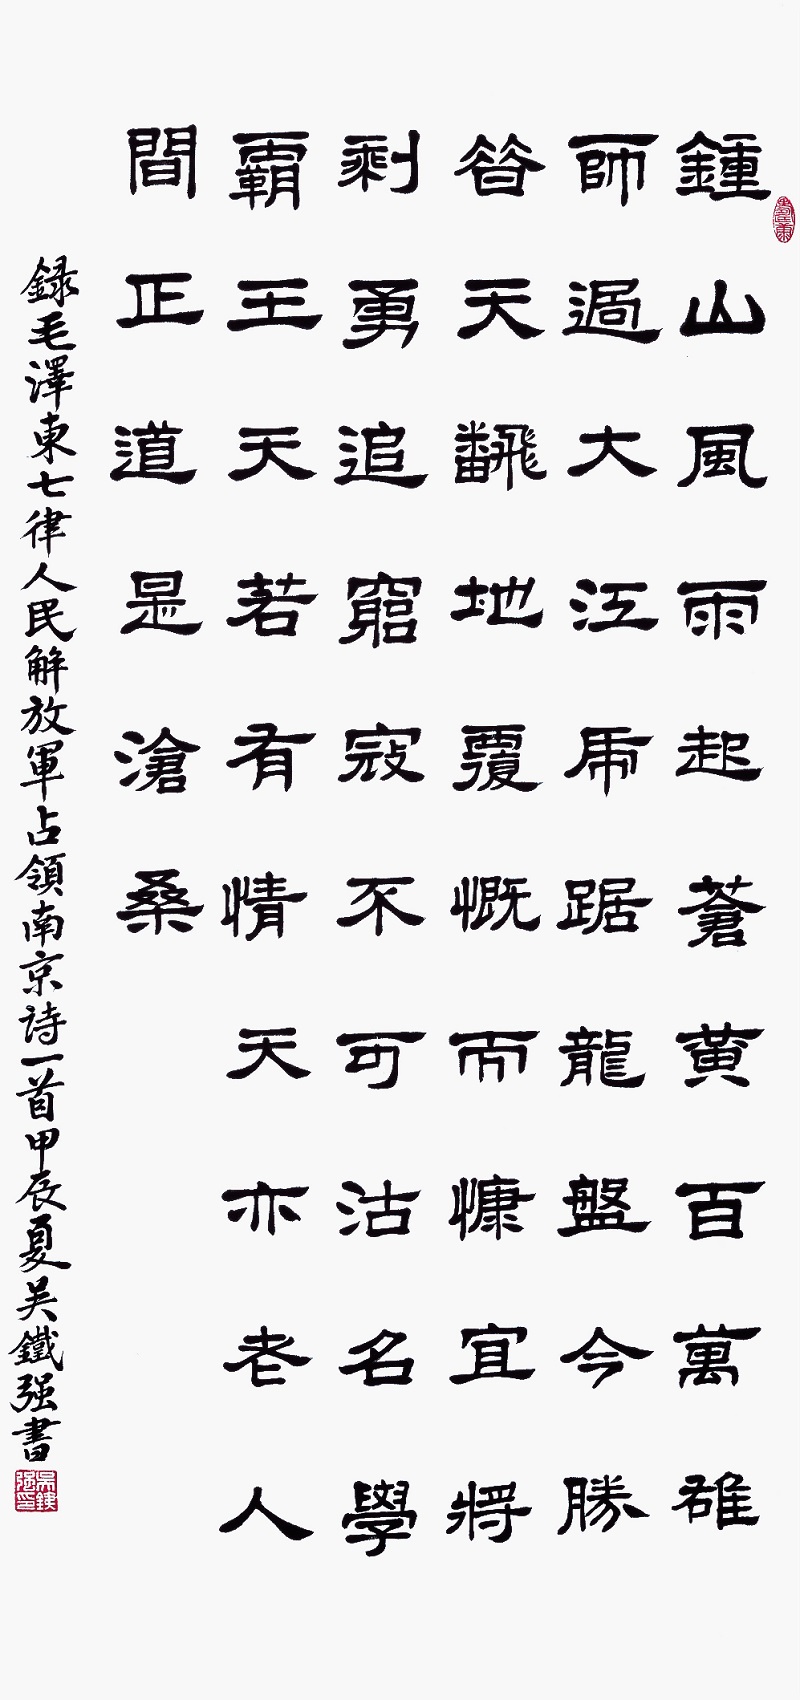 鍾山風雨起蒼黄百萬雄
師過大江虎踞龍盤今勝
昔天翻地覆慨而慷宜將
剩勇追窮寇不可沽名學
霸王天若有情天亦老人
間正道是滄桑
録毛澤東七律人民解放軍占領南京詩一首甲辰夏吴鐵强書